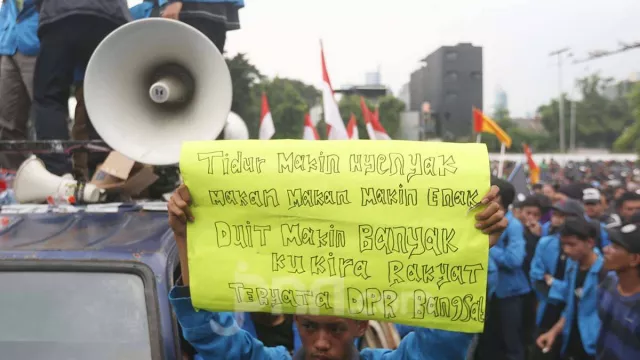 Tidur Makin Nyenyak
Makan Makan Makin Enak
Duit Makin Banyak
Kukira Rakyat
Ternyata DPR Bangsat